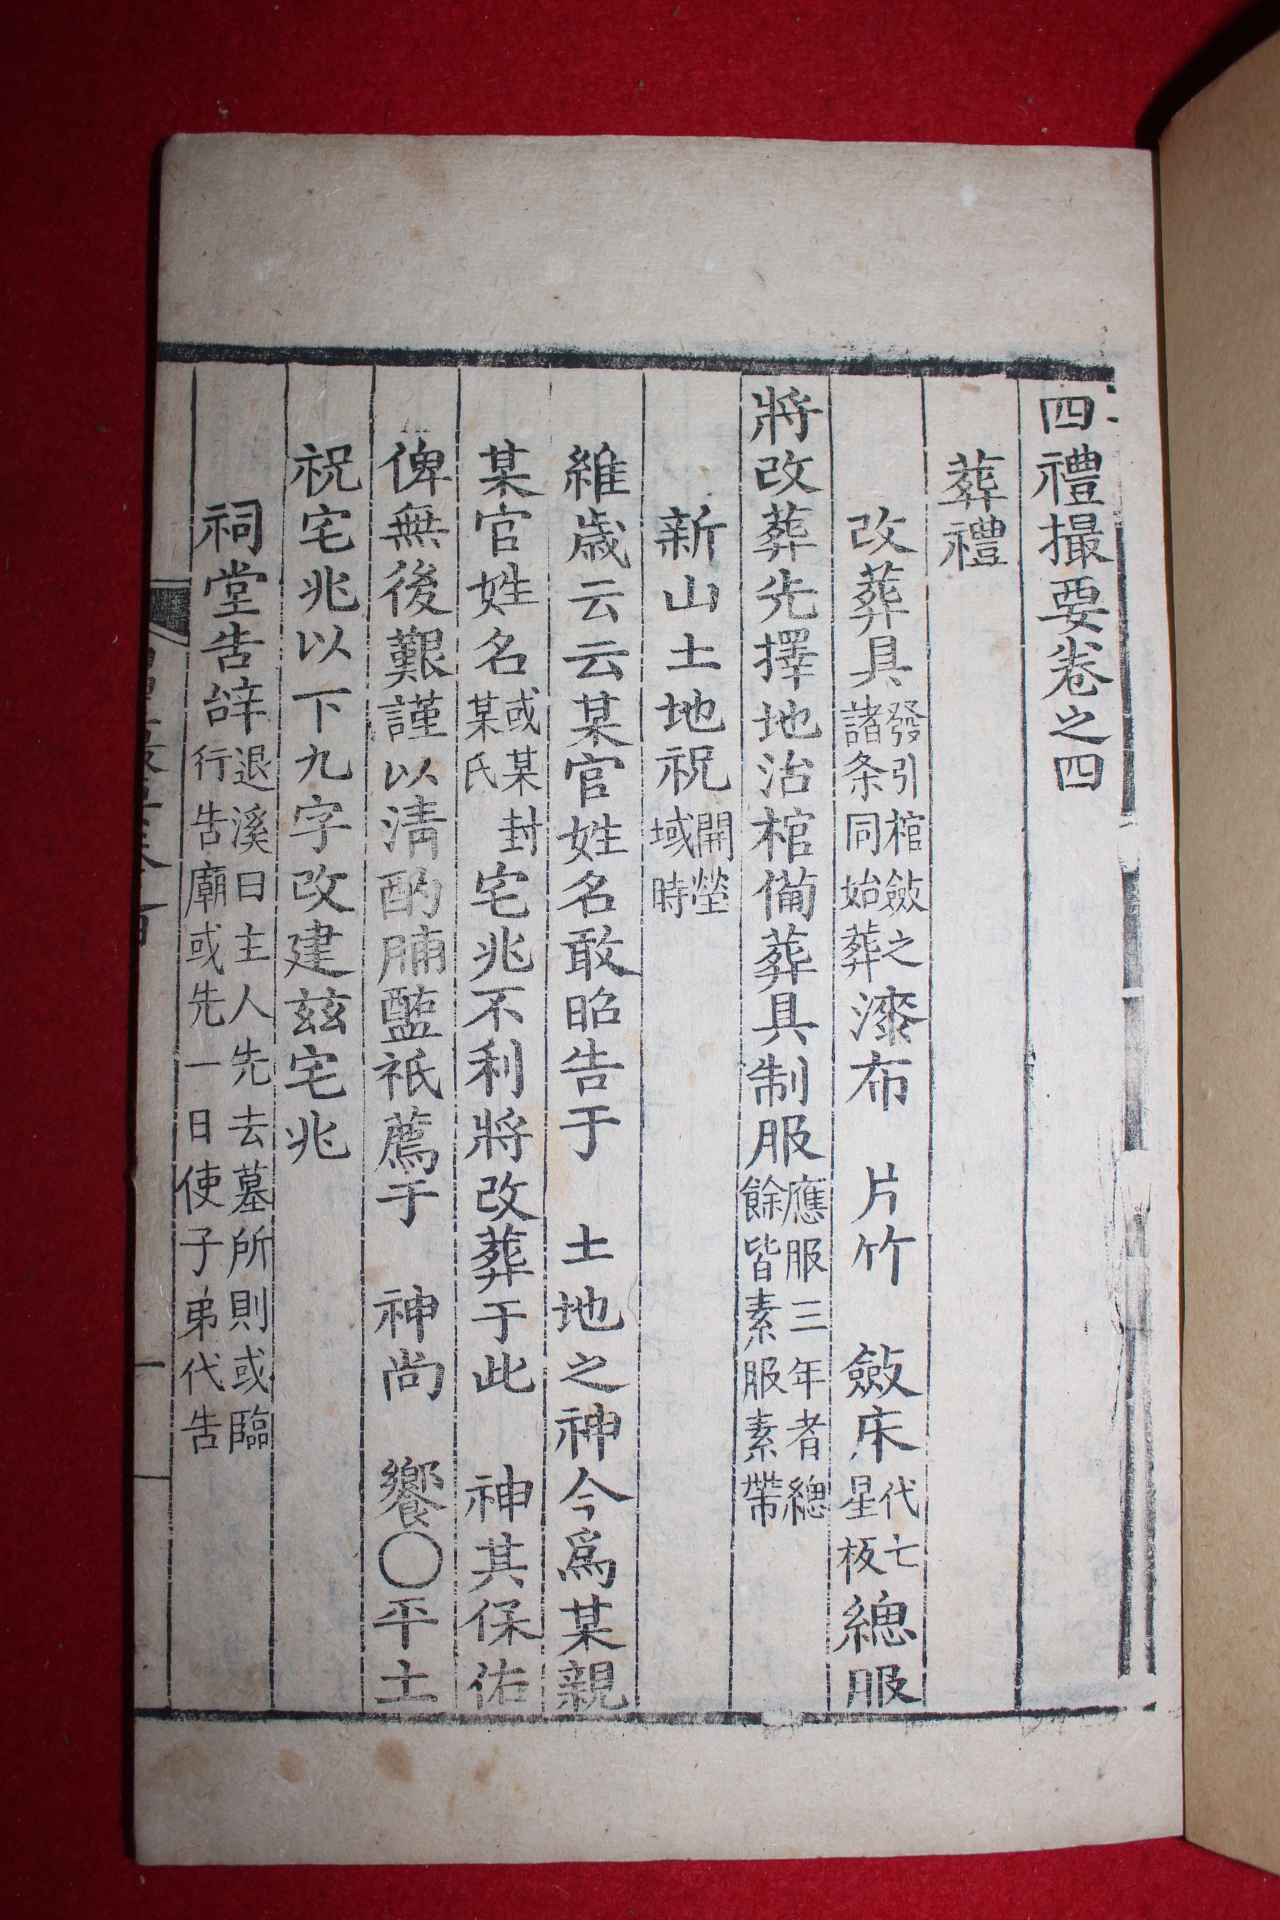 四禮撮要卷之四
葬禮
改葬具發引棺斂之諸条同始葬漆布 片竹 斂床代七星板緦服
將改葬先擇地治棺備葬具制服應服三年者緦餘皆素服素帶
新山土地祝開塋域時
維歲云云某官姓名敢昭告于 土地之神今爲某親
某官姓名或某封某氏宅兆不利將改葬于此 神其保佑
俾無後艱謹以淸酌脯醢祇薦于 神尙 饗○平土
祝宅兆以下九字改建玆宅兆
祠堂告辭退溪曰主人先去墓所則或臨行告廟或先一日使子弟代告